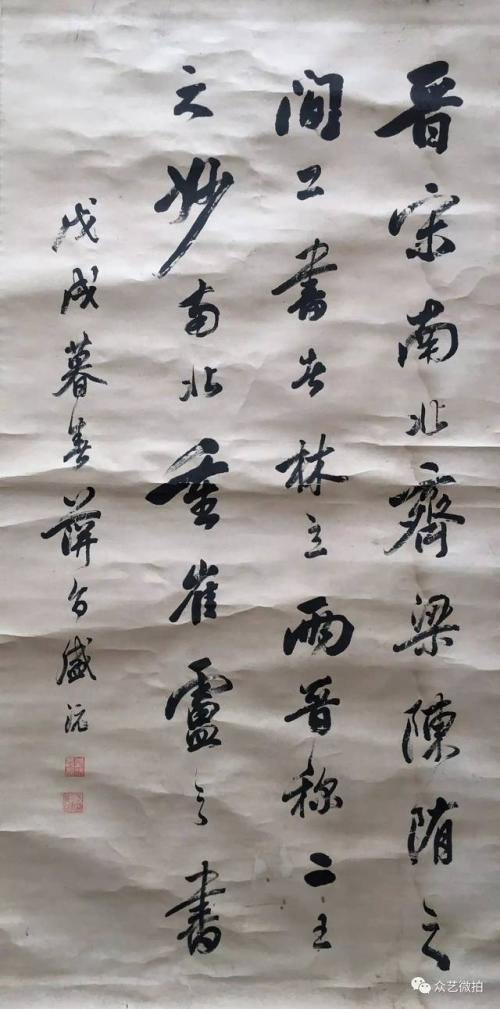 晋宋南北齊梁陳隋之
間工書者林立兩晋称二王
之妙南北重崔盧之書
戊戌暮春蕭台盛沅
众艺微拍